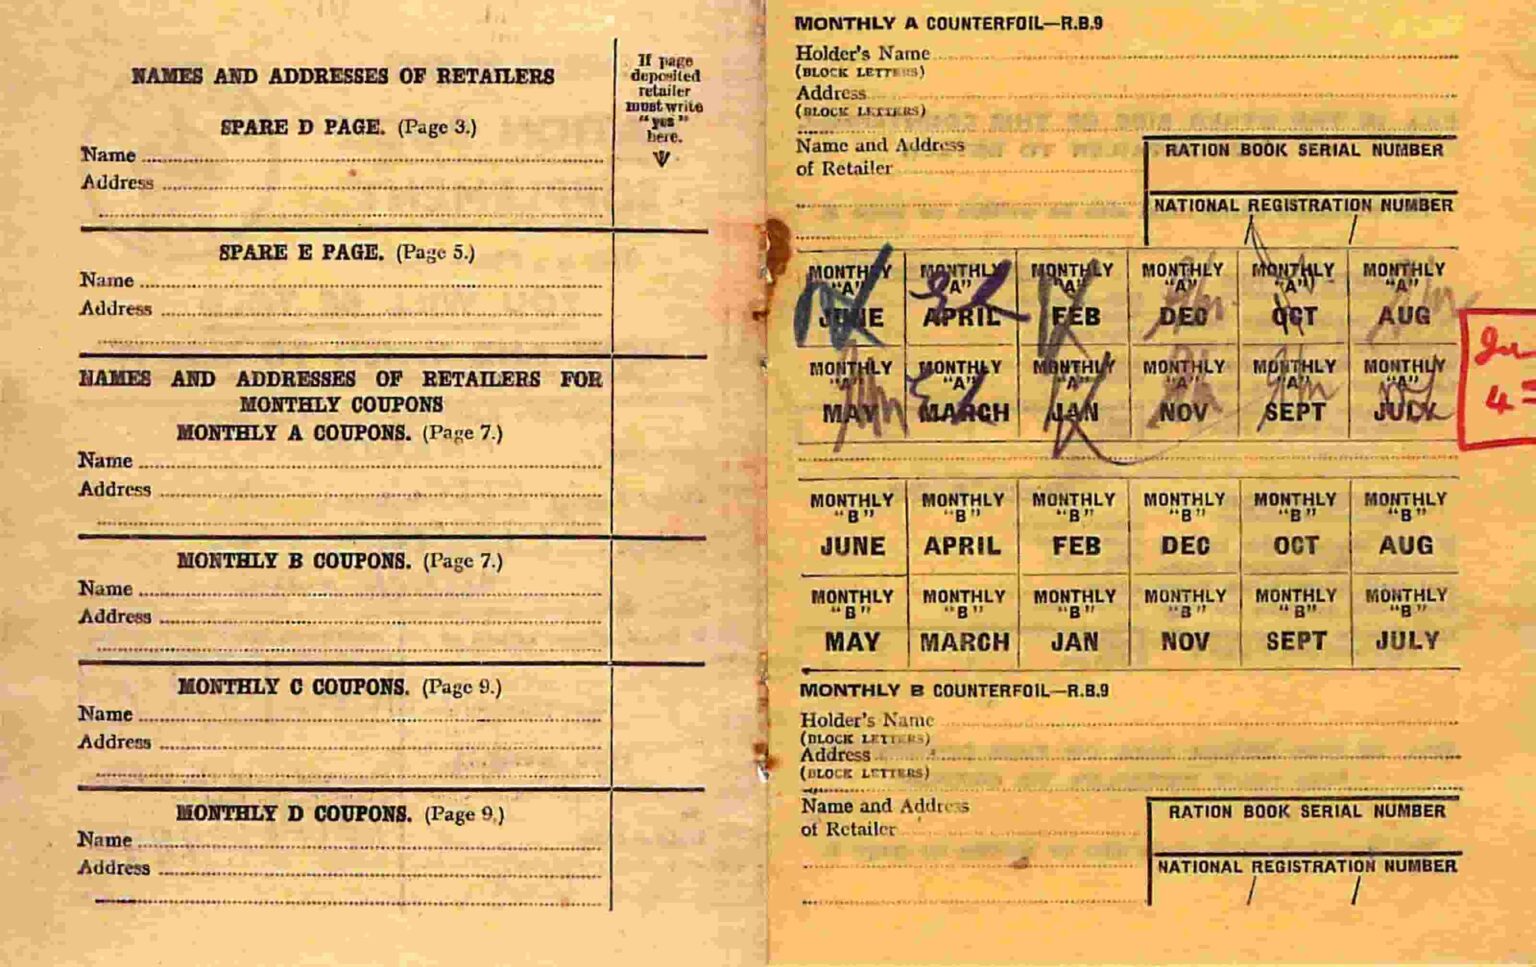 NAMES AND ADDRESSES OF RETAILERS
If page
deposited
retailer
must write
"yes"
here.
SPARE D PAGE. (Page 3.)
Name
Address
SPARE E PAGE. (Page 5.)
Name
Address
NAMES AND ADDRESSES OF RETAILERS FOR
MONTHLY COUPONS
MONTHLY A COUPONS. (Page 7.)
Name
Address
MONTHLY B COUPONS. (Page 7.)
Name
Address
MONTHLY C COUPONS. (Page 9.)
Name
Address
MONTHLY D COUPONS. (Page 9.)
Name
Address
MONTHLY A COUNTERFOIL—R.B.9
Holder's Name
(BLOCK LETTERS)
Address
(BLOCK LETTERS)
Name and Address
of Retailer
RATION BOOK SERIAL NUMBER
NATIONAL REGISTRATION NUMBER
/ /
MONTHLY MONTHLY MONTHLY MONTHLY MONTHLY MONTHLY
"A" "A" "A" "A" "A" "A"
JUNE APRIL FEB DEC OCT AUG
MONTHLY MONTHLY MONTHLY MONTHLY MONTHLY MONTHLY
"A" "A" "A" "A" "A" "A"
MAY MARCH JAN NOV SEPT JULY
4=
MONTHLY MONTHLY MONTHLY MONTHLY MONTHLY MONTHLY
"B" "B" "B" "B" "B" "B"
JUNE APRIL FEB DEC OCT AUG
MONTHLY MONTHLY MONTHLY MONTHLY MONTHLY MONTHLY
"B" "B" "B" "B" "B" "B"
MAY MARCH JAN NOV SEPT JULY
MONTHLY B COUNTERFOIL—R.B.9
Holder's Name
(BLOCK LETTERS)
Address
(BLOCK LETTERS)
Name and Address
of Retailer
RATION BOOK SERIAL NUMBER
NATIONAL REGISTRATION NUMBER
/ /